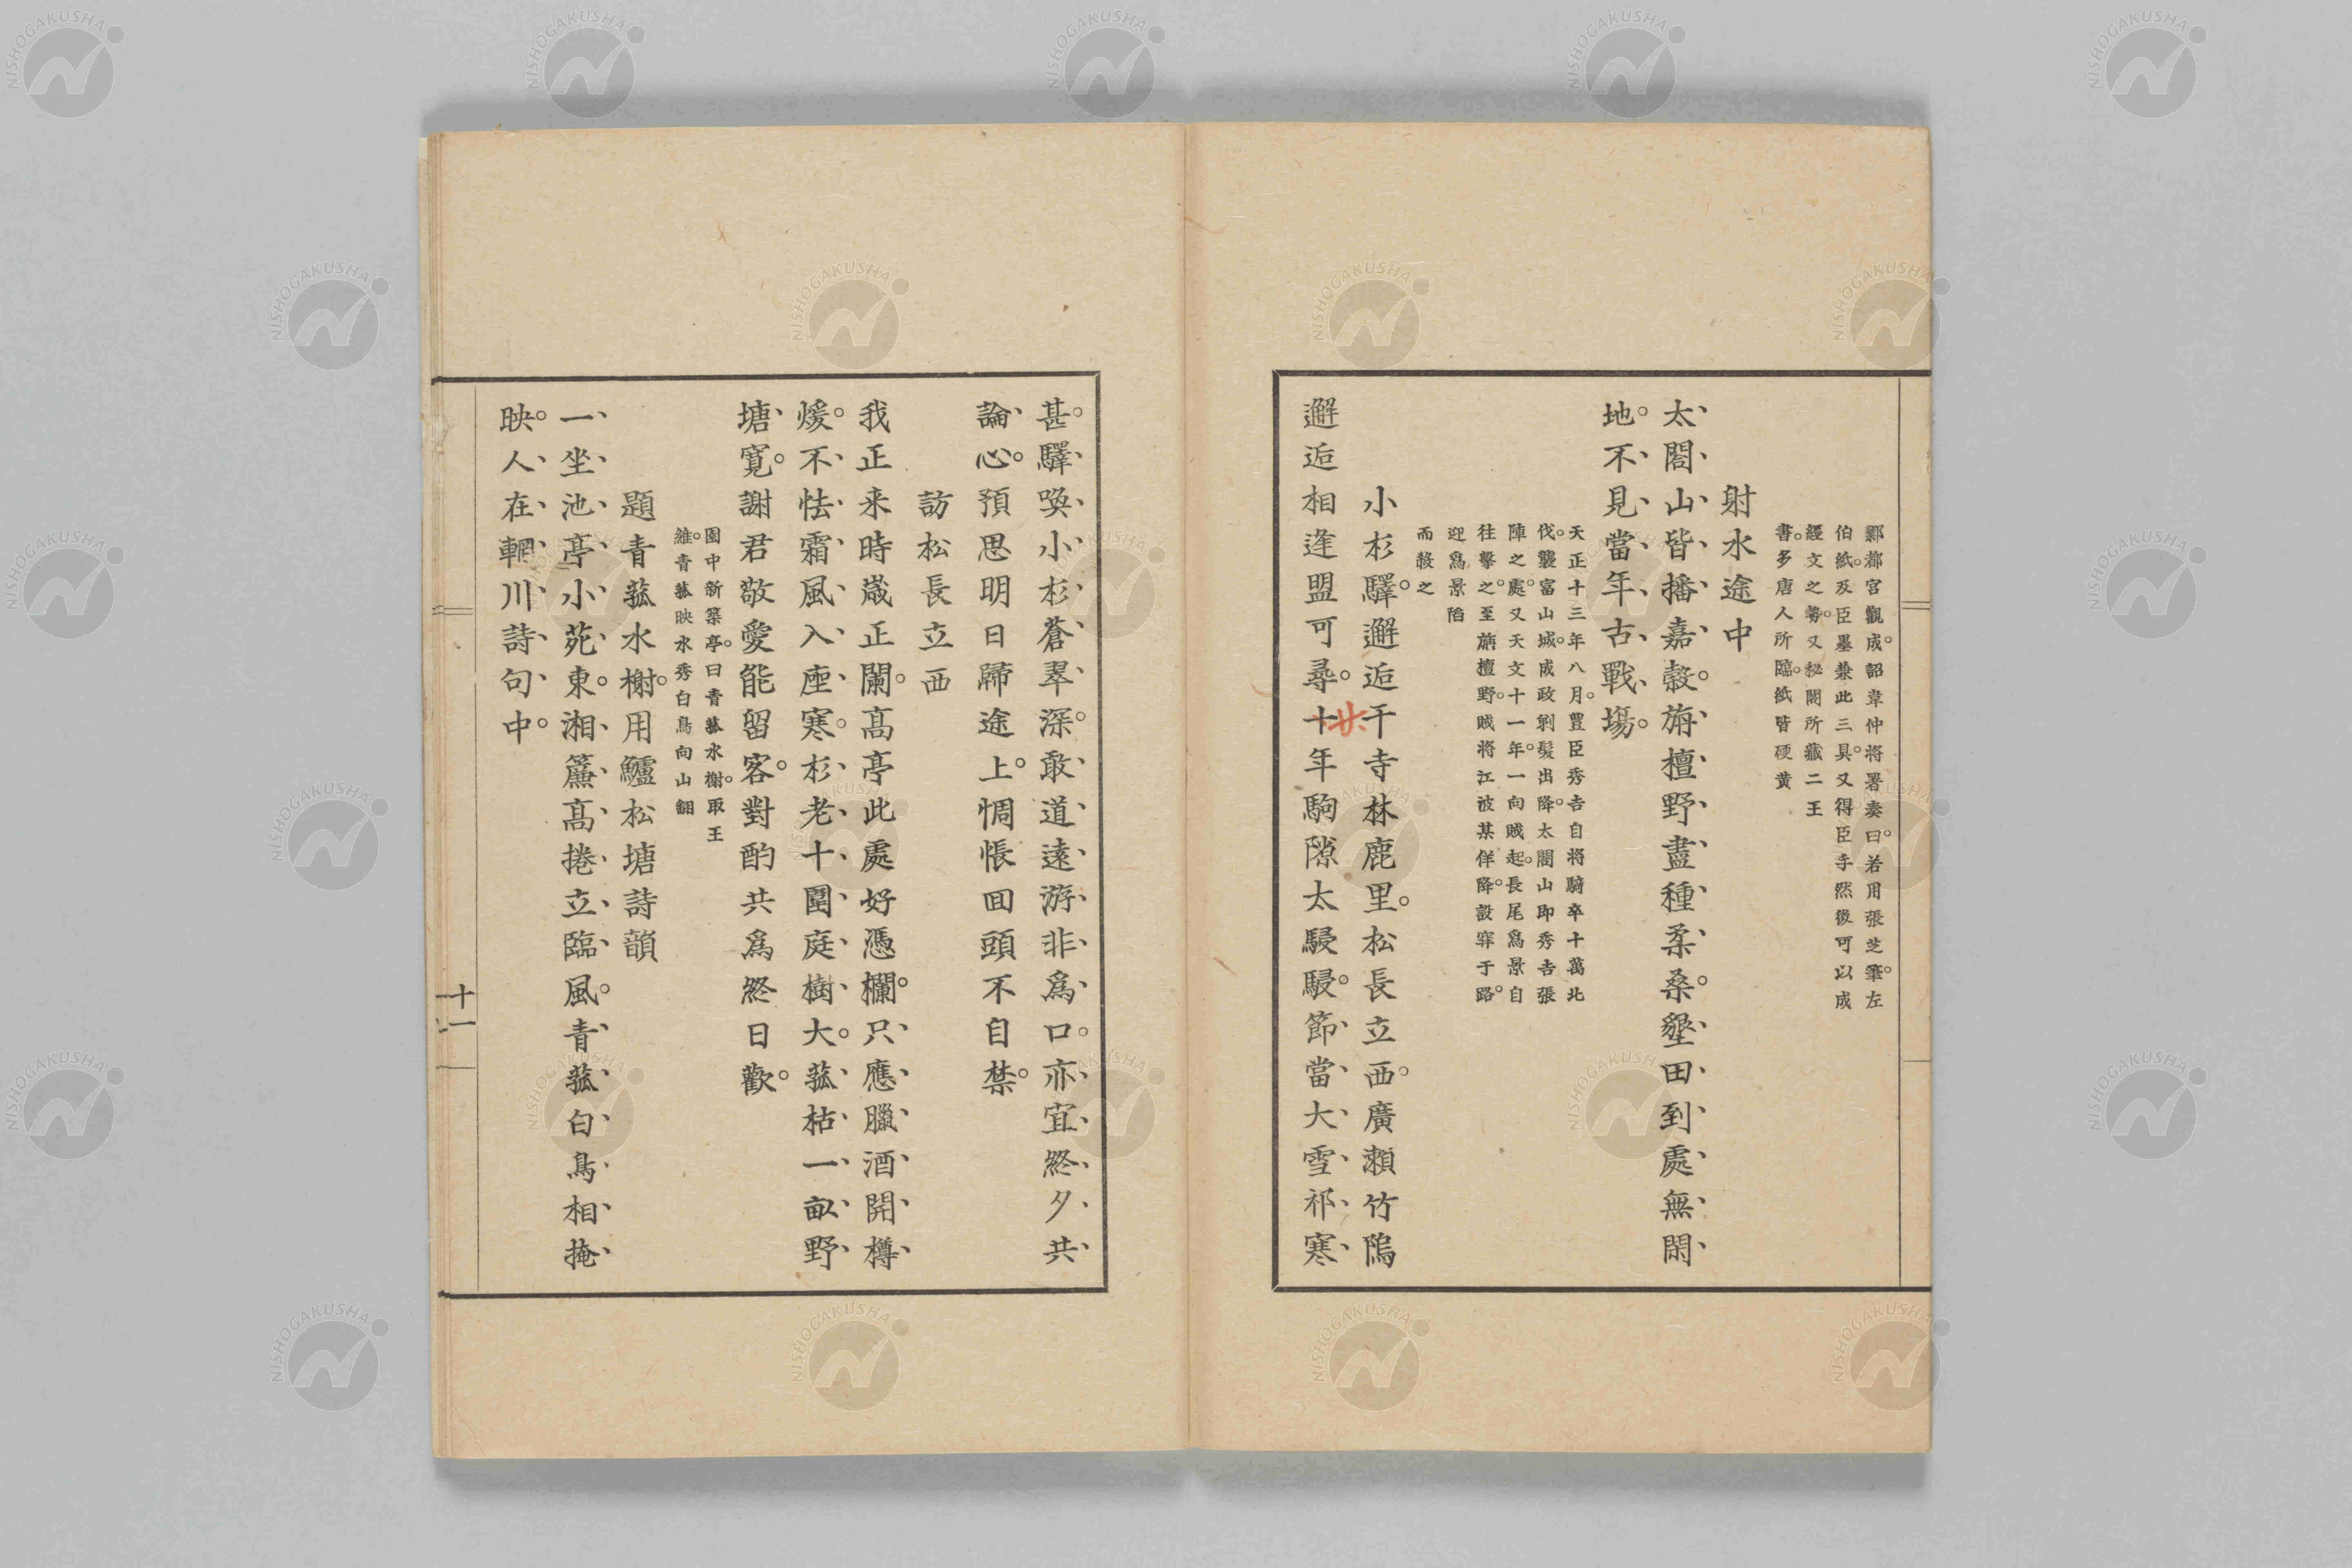 鄴都宮觀成。詔韋仲將署奏曰。若用張芝筆。左
伯紙。及臣墨兼此三具。又得臣手然後可以成
經文之勢。又秘閣所藏二王
書。多唐人所臨。紙皆硬黄
射水途中
太閤山皆播嘉穀。旃檀野盡種柔桑。墾田到處無閑
地。不見當年古戰場。
天正十三年八月。豊臣秀吉自將騎卒十萬北
伐。襲富山城。成政剃髮出降。太閤山即秀吉張
陣之處。又天文十一年。一向賊起。長尾爲景自
往擊之。至旃檀野。賊將江波某佯降。設穽于路。
迎爲景陷
而殺之
小杉驛。邂逅干寺林鹿里。松長立西。廣瀨竹隝
邂逅相逢盟可尋。十年駒隙太駸駸。節當大雪祁寒
廿
甚。驛喚小杉蒼翠深。敢道遠游非爲口。亦宜終夕共
論心。預思明日歸途上。惆悵回頭不自禁。
訪松長立西
我正来時歲正闌。髙亭此處好憑欄。只應臘酒開樽
煖。不怯霜風入座寒。杉老十圍庭樹大。菰枯一畝野
塘寬。謝君敬愛能留客。對酌共爲終日歡。
園中新築亭。曰青菰水榭。取王
維。青菰映水秀白鳥向山翻
題青菰水榭。用鱸松塘詩韻
一坐池亭小苑東。湘簾髙捲立臨風。青菰白鳥相掩
映。人在輞川詩句中。
十一